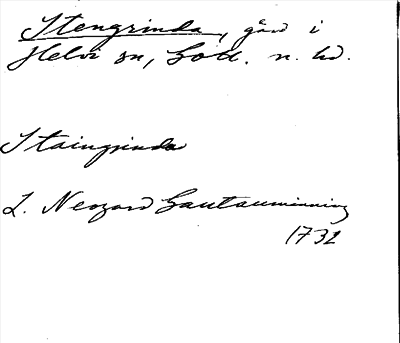 Stengrinda, gård i
Hellvi sn, Gotl. n. hd.
Staingrinda
L. Neogard Gautauminning
1732